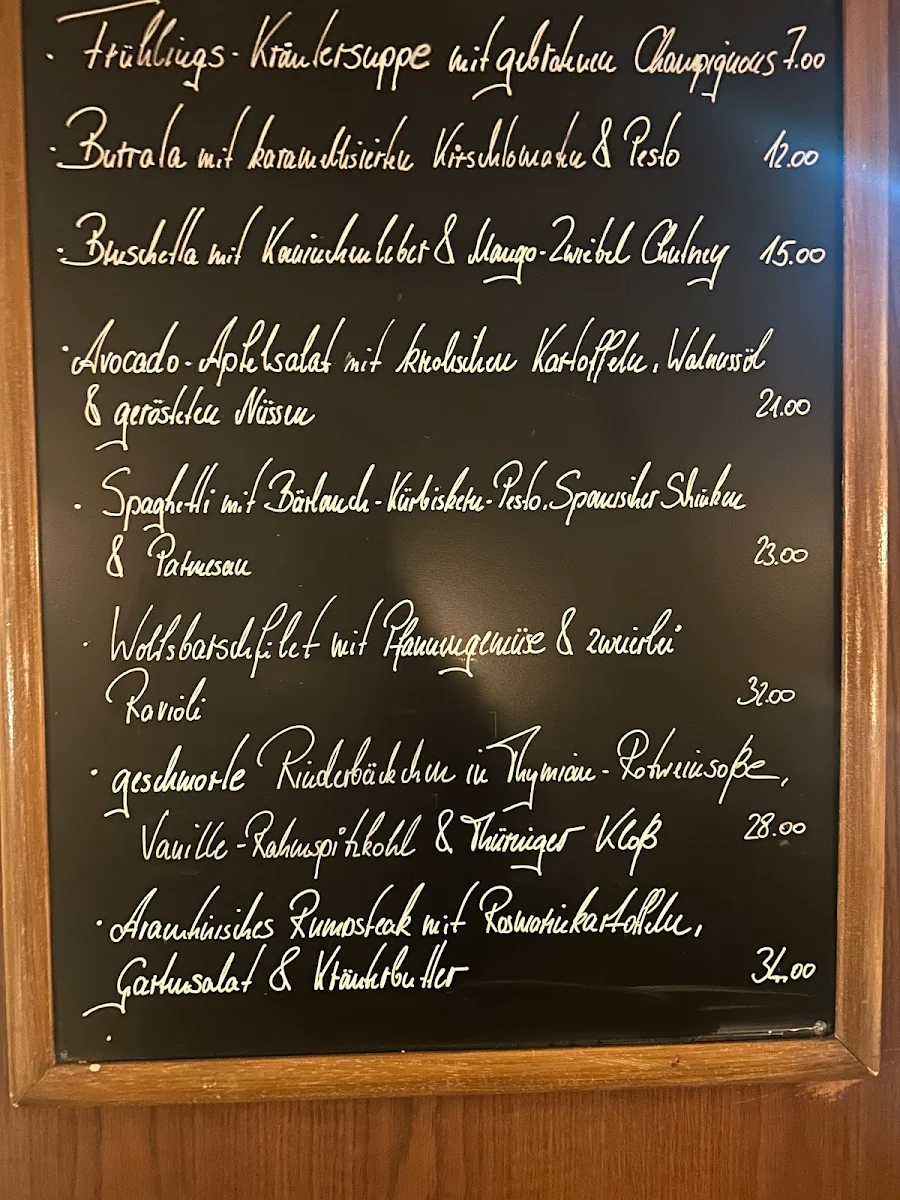 · Frühlings-Kräutersuppe mit gebratenen Champignons 7.00
· Burrata mit karamellisierten Kirschtomaten & Pesto 12.00
· Bruschetta mit Kaninchenleber & Mango-Zwiebel Chutney 15.00
· Avocado-Apfelsalat mit kretischen Kartoffeln, Walnussöl
& gerösteten Nüssen 21.00
· Spaghetti mit Bärlauch-Kürbiskern-Pesto, Spanischer Schinken
& Parmesan 23.00
· Wolfsbarschfilet mit Pfannengemüse & zweierlei
Ravioli 32.00
· geschmorte Rinderbäckchen in Thymian-Rotweinsoße,
Vanille-Rahmspitzkohl & Thüringer Kloß 28.00
· Argentinisches Rumpsteak mit Rosmarinkartoffeln,
Gartensalat & Kräuterbutter 34.00